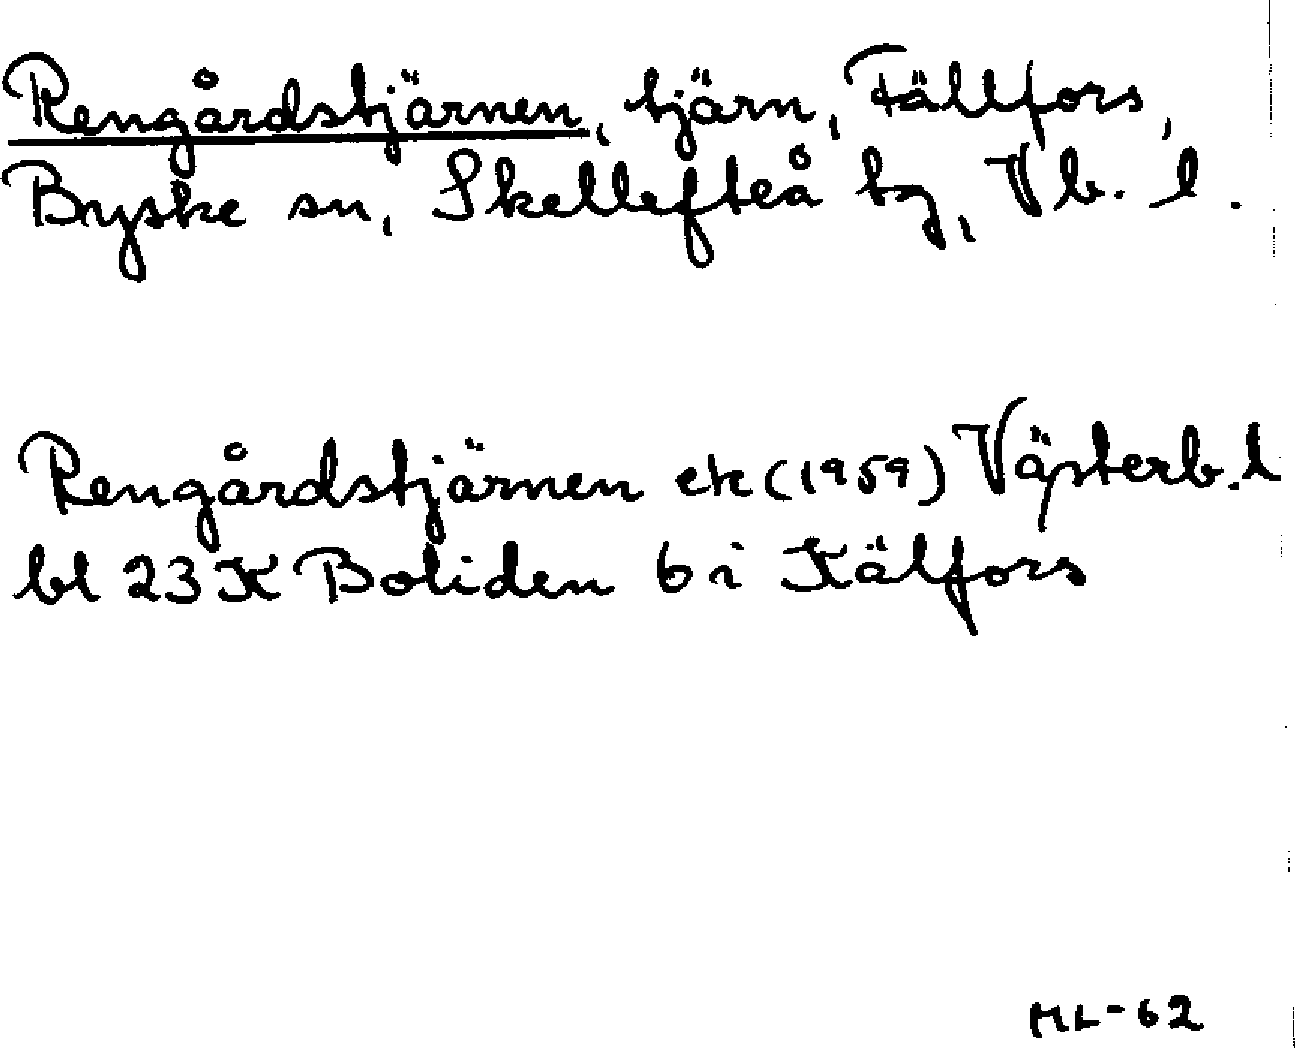 Rengårdstjärnen, tjärn, Fällfors,
Byske sn, Skellefteå tg, Vb. l.
Rengårdstjärnen ek (1959) Västerb. l
bl 23 K Boliden 6 i Kälfors
ML-62